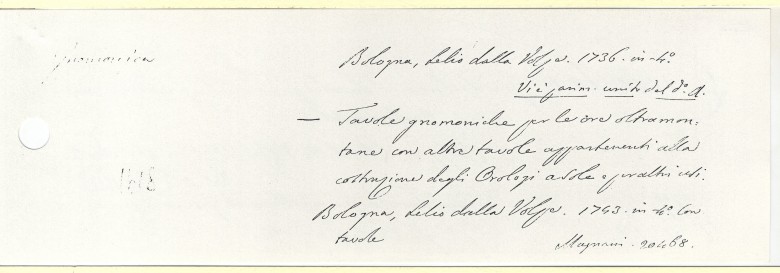 Gnomonica
Bologna, Lelio dalla Volpe. 1736. in-4.º
Vi è parim. unito del d.º A.
— Tavole gnomoniche per le ore oltramon-
tane con altre tavole appartenenti alla
costruzione degli Orologi a sole e per altri usi.
Bologna, Lelio dalla Volpe. 1743. in-4.º Con
tavole
Magnani. 20468.